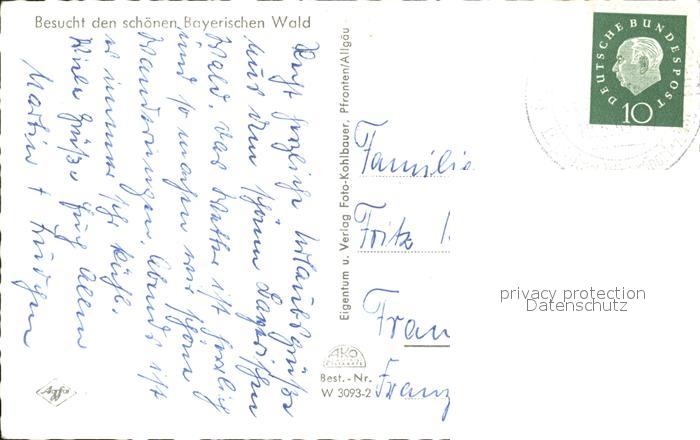 Besucht den schönen Bayerischen Wald
Recht herzliche Urlaubsgrüße
aus dem schönen Bayrischen
Wald. Das Wetter ist herrlich
und so machen wir schöne
Wanderungen. Abends ist
es immer sehr kühl.
Viele Grüße Euch allen
Martin +
Eigentum u. Verlag Foto-Kohlbauer, Pfronten/Allgäu
AKO
Best.-Nr.
W 3093-2
Agfa
DEUTSCHE BUNDESPOST
10
Familie
Fritz
Fran
Franz
privacy protection
Datenschutz